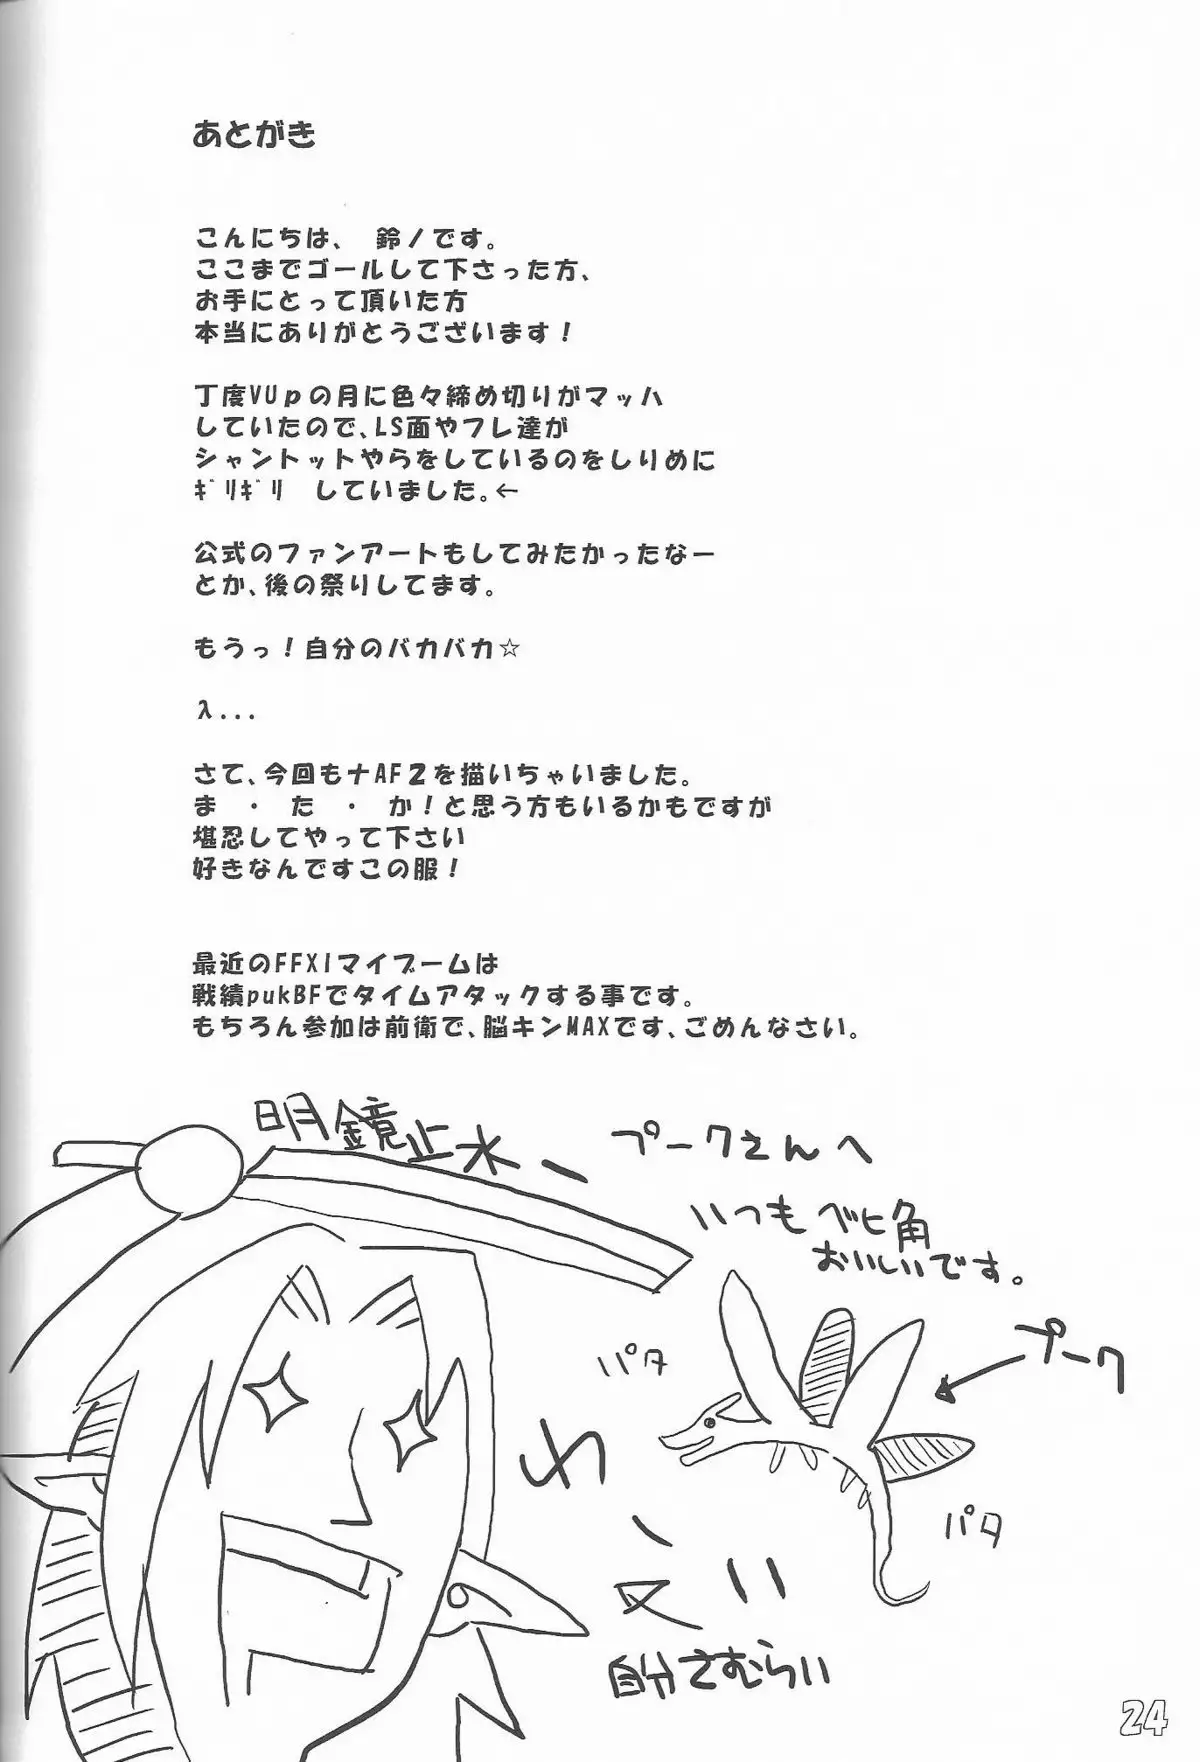 あとがき
こんにちは、　鈴ノです。
ここまでゴールして下さった方、
お手にとって頂いた方
本当にありがとうございます！
丁度VUpの月に色々締め切りがマッハ
していたので、LS面やフレ達が
シャントットやらをしているのをしりめに
ｷﾞﾘｷﾞﾘ　していました。←
公式のファンアートもしてみたかったなー
とか、後の祭りしてます。
もうっ！自分のバカバカ☆
λ...
さて、今回もナAF2を描いちゃいました。
ま　・　た　・　か！と思う方もいるかもですが
堪忍してやって下さい
好きなんですこの服！
最近のFFXIマイブームは
戦績pukBFでタイムアタックする事です。
もちろん参加は前衛で、脳キンMAXです、ごめんなさい。
明鏡止水ー
プークさんへ
いつもベヒ角
おいしいです。
パタ
プーク
パタ
自分さむらい
24